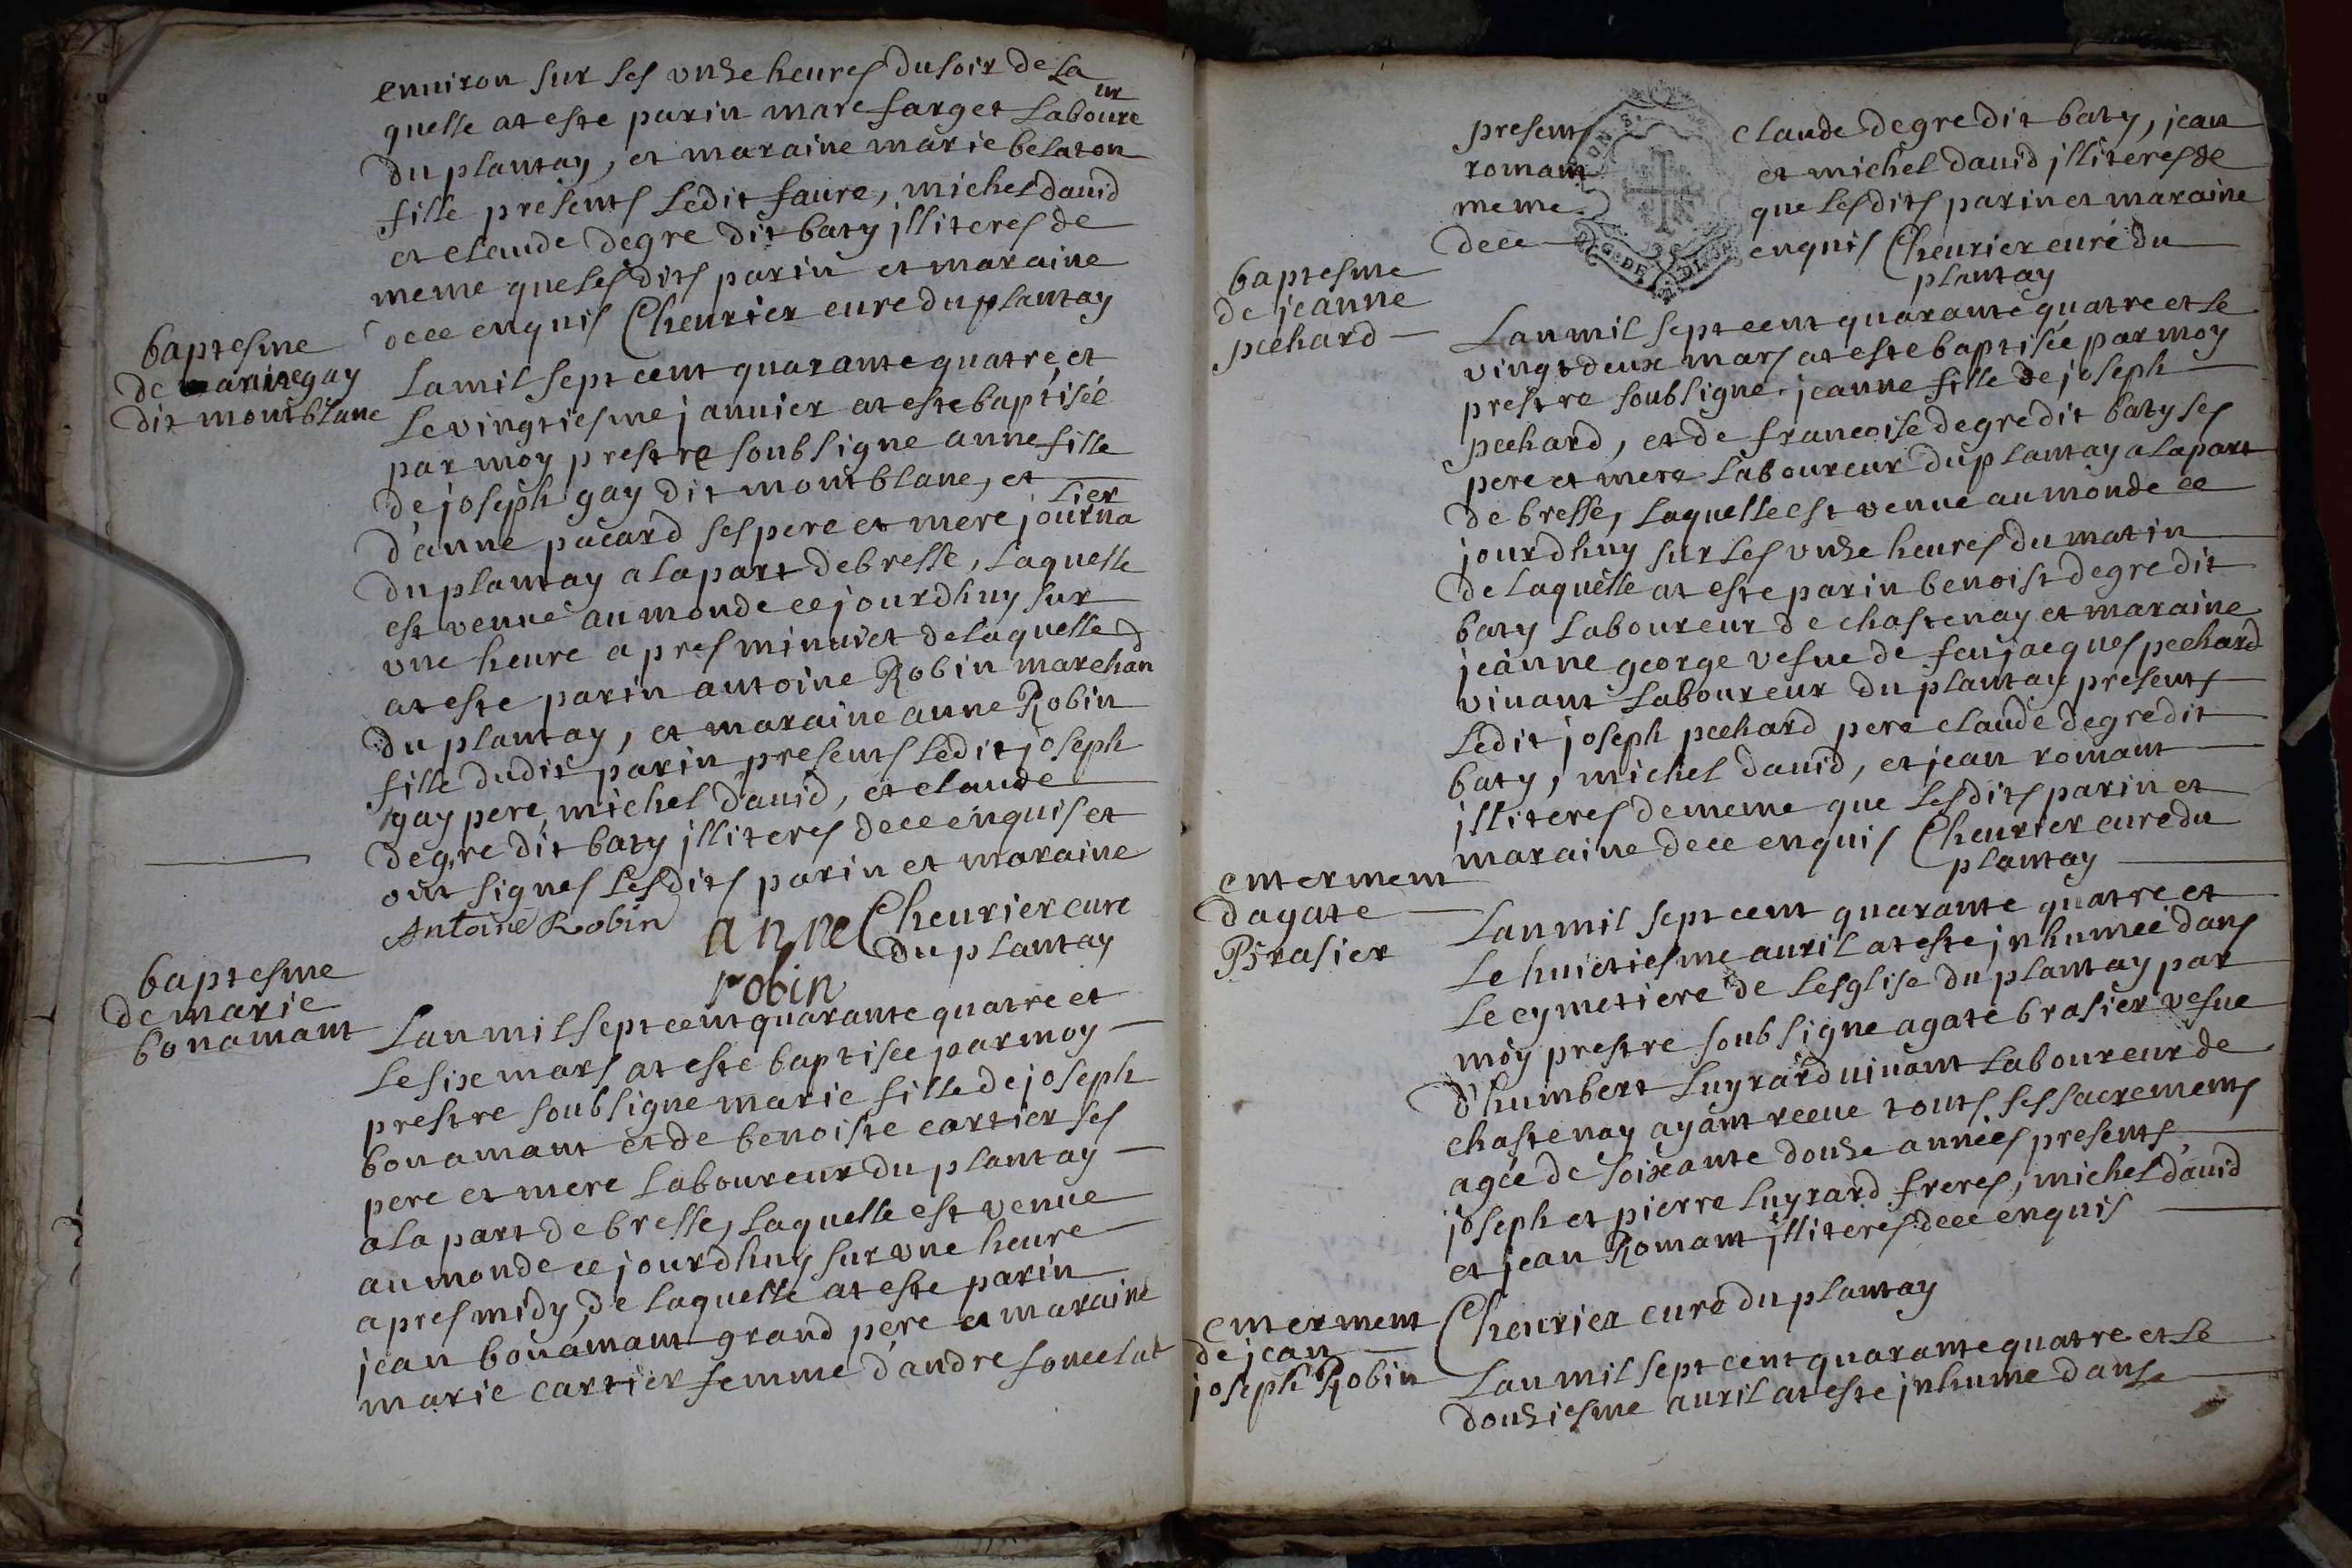 enuiron sur les vnze heures du soir de La
quelle at este parin marc farget Laboure
ur
du plantay, et maraine marie belaton
fille presents Ledit faure, michel dauid
et claude degre dit baty jlliteres de
meme que lesdits parin et maraine
dece enquis Cheurier cure du plantay
baptesme
de marie gay
dit montblanc
Lamil sept cent quarante quatre, et
Le vingtiesme januier at este baptisée
par moy prestre soubsigne anne fille
de joseph gay dit montblanc, et
d'anne pacard ses pere et mere journa
lier
du plantay a la part de bresse, Laquelle
est venue au monde ce jourdhuy sur
vne heure apres minuict de laquelle
at este parin antoine Robin marchan
d
du plantay, et maraine anne Robin
fille dudit parin presents Ledit joseph
gay pere, michel dauid, et claude
degre dit baty jlliteres dece enquis et
ont signes Lesdits parin et maraine
Antoine Robin anne Cheurier cure
du plantay
robin
baptesme
de marie
bonamant
Lan mil sept cent quarante quatre et
Le six mars at este baptisée par moy
prestre soubsigne marie fille de joseph
bonamant et de benoiste cartier ses
pere et mere Laboureur du plantay
a la part de bresse, Laquelle est venue
au monde ce jourdhuy sur vne heure
apres midy, de laquelle at este parin
jean bonamant grand pere et maraine
marie cartier femme d'andre
presents claude degre dit baty, jean
romant et michel dauid jlliteres de
meme que Lesdits parin et maraine
dece enquis Cheurier curé du
plantay
baptesme
de jeanne
pechard
Lan mil sept cent quarante quatre et Le
vingt deux mars at este baptisée par moy
prestre soubsigne jeanne fille de joseph
pechard, et de francoise degre dit baty ses
pere et mere Laboureur du plantay a la part
de bresse, Laquelle est venue au monde ce
jourdhuy sur Les vnze heures du matin
de laquelle at este parin benoist degre dit
baty Laboureur de chastenay et maraine
jeanne george vefue de feu jacques pechard
viuant Laboureur du plantay presents
Ledit joseph pechard pere claude degre dit
baty, michel dauid, et jean romant
jlliteres de meme que Lesdits parin et
maraine dece enquis Cheurier cure du
plantay
enterment
dagate
Brasier
Lan mil sept cent quarante quatre et
Le huictiesme auril at este jnhumée dans
Le cymetiere de Lesglise du plantay par
moy prestre soubsigne agate brasier vefue
d'humbert Luyrard viuant Laboureur de
chastenay ayant receue touts ses sacrements
agée de soixante douze années presents
joseph et pierre Luyrard freres, michel dauid
et jean Romant jlliteres dece enquis
Cheurier cure du plantay
enterment
de jean
joseph Robin
Lan mil sept cent quarante quatre et Le
douziesme auril at este jnhume dans